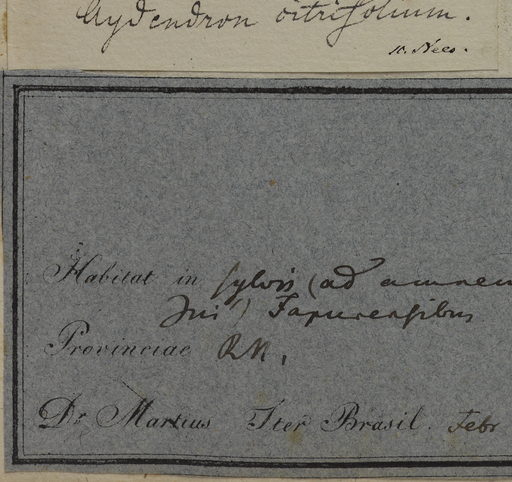 Aydendron citrifolium.
sc. Nees.
Habitat in sylvis (ad amnem
Japurensibus
Provinciae R.N.
Dr Martius Iter Brasil. Febr